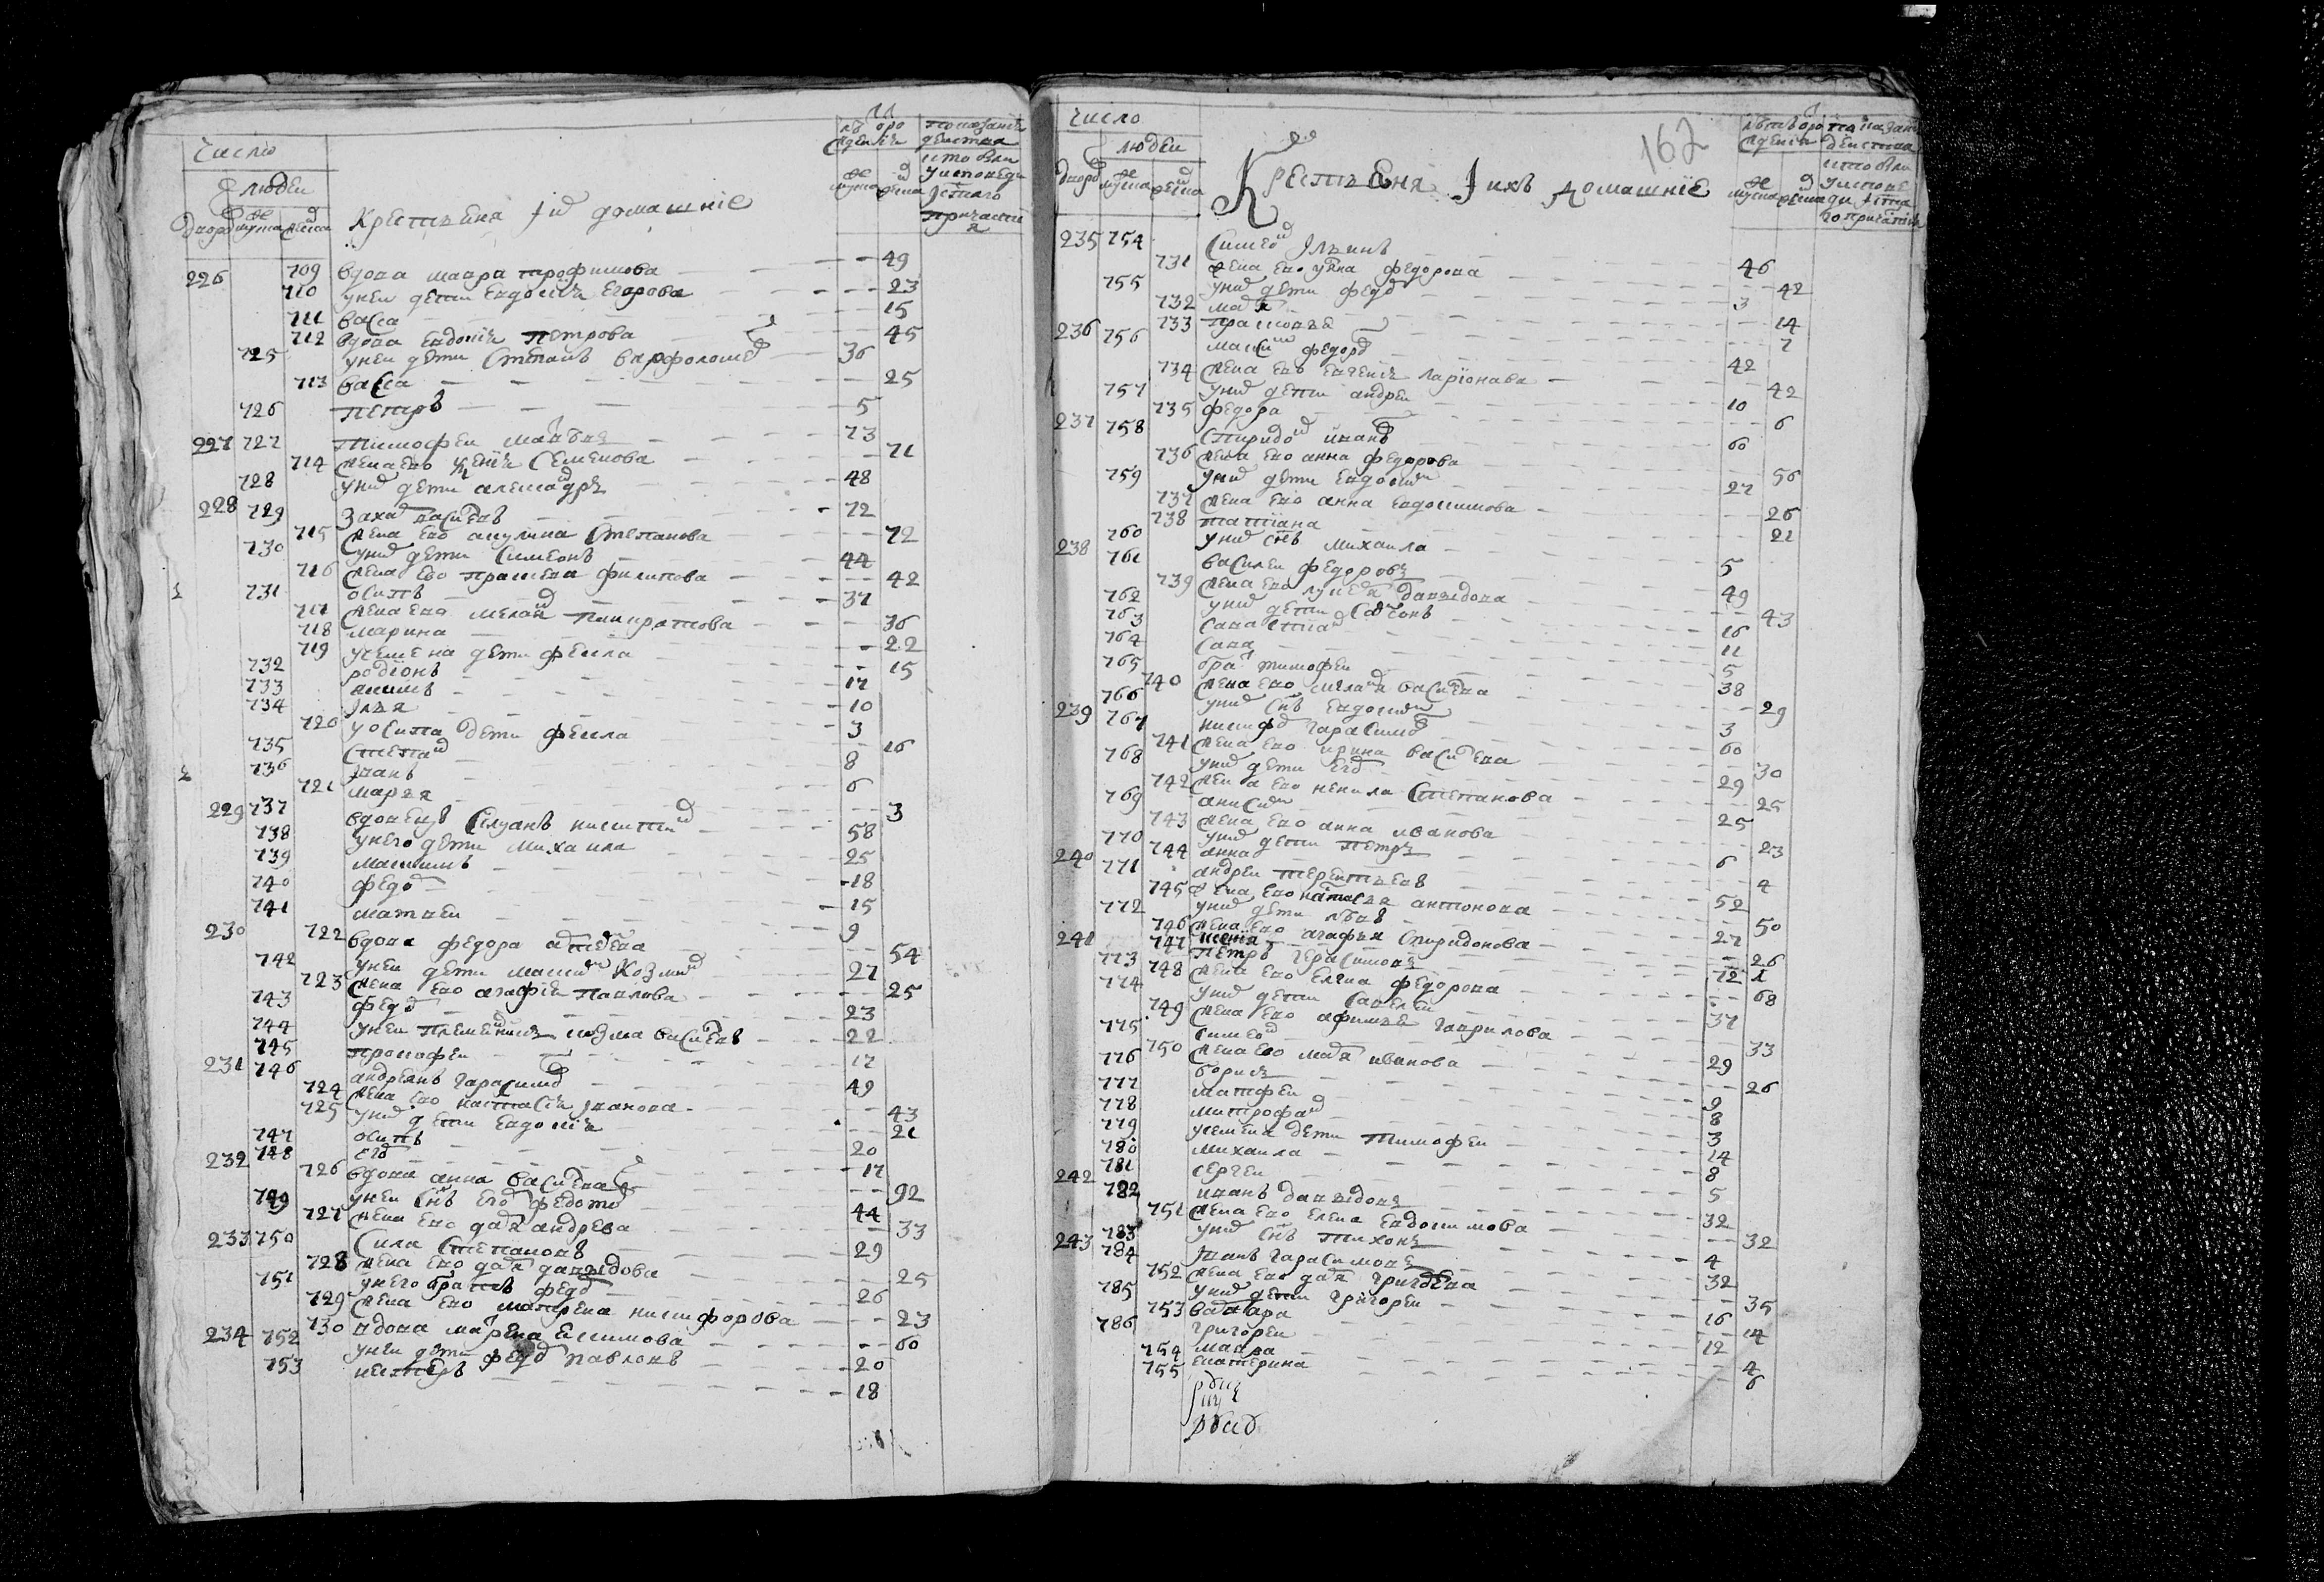 число
людеи
дворо муска женска
Крестьяня іих домашніе
лѣт о рожденіи
муска женска
показаніе действа кто был у исповеди и святаго причастия
226 709 вдова мавра трофимова 49
710 унеи дети евдокия егорова 23
711 васса 15
712 вдова евдокия петрова 45
725 унеи дети степанъ варфоломе 36
713 васса 25
726 петръ 5
227 727 тимофеи матвея 73
714 жена ево ксения семенова 71
728 унего дети алексадръ 48
228 729 захар василевъ 72
715 жена ево акулина степанова 72
730 унего дети симеонъ 44
716 жена ево прасковя филипова 42
731 осипъ 37
717 жена ево мелания панкратова 36
718 марина 22
719 усемена дети фекла 15
732 родіонъ 17
733 якимъ 10
734 Iлья 3
720 уосипа дети фекла 16
735 степан 8
736 Iванъ 6
721 марья 3
229 737 вдовецъ силуанъ никити 58
738 унего дети михаила 25
739 максимъ 18
740 федо 15
741 матвеи 9
230 722 вдова федора 54
742 унеи дети максим козмин 27
723 жена ево агафія павлова 25
743 федо 23
744 унеи племенникъ козма василевъ 22
745 прокофеи 17
231 746 андреянъ гарасимо 49
724 жена ево настасія Iванова 43
725 унего дети евдокия 21
747 осипъ 20
748 его 17
232 726 вдова анна василева 92
749 унеи снъ его федото 44
727 жена ево дарья андреева 33
233 750 сила степановъ 29
728 жена ево дарья давыдова 25
751 унего братъ федо 26
729 жена ево матрена никифорова 23
234 730 вдова марфа екимова 60
752 унеи дети федо павловъ 20
753 нестеръ 18
число
людеи
дворо муска женска
Крестьяня Iихъ домашніе
162
лѣтъ о рожденіи
муска женска
показані действа кто были у исповеди и святаго причастия
235 754 симео Iльинъ 46
731 жена ево ульяна федорова 42
755 унего дети федо 3
732 марья 14
733 прасковья 7
236 756 максим федоро 42
734 жена евъ евгения ларіонава 42
757 унего дети андреи 10
735 федора 6
237 758 спиридо иванъ 60
736 жена ево анна федорова 56
759 унего дети евдоким 27
737 жена ево анна евдокимова 26
738 татіана 21
760 унего снъ михаила 5
238 761 василеи федоровъ 49
739 жена ево лукеря давыдова 43
762 унего дети сафонъ 16
763 савастиа 11
764 сава 5
765 брат тимофеи 38
740 жена ево мелания василева 29
766 унего снъ евдоким 3
239 767 никифо гарасимо 60
741 жена ево ирина василева 30
768 унего дети его 29
742 жена ево ненила степанова 25
769 анисим 25
743 жена ево анна иванова 23
770 унего дети петръ 6
744 анна 4
240 771 андреи терентьевъ 52
745 жена ево наталья антонова 50
772 унего дети лѣвъ 27
746 жена ево агафья спиридонова 26
747 ксения 1
241 773 петръ герасимовъ 72
748 жена ево елена федорова 68
774 унего дети савелеи 37
749 жена ево афимья гаврилова 33
775 симео 29
750 жена ево марья иванова 26
776 борисъ 9
777 матфеи 8
778 митрофа 3
779 усемена дети тимофеи 14
780 михаила 8
781 сергеи 5
242 782 иванъ давыдовъ 32
751 жена ево елена евдокимова 32
783 унего снъ тихонъ 4
243 784 Iванъ гарасимовъ 32
752 жена ево дарья григорева 35
785 унего дети григореи 16
753 варвара 14
786 григореи 12
754 мавра 4
755 екатерина 6